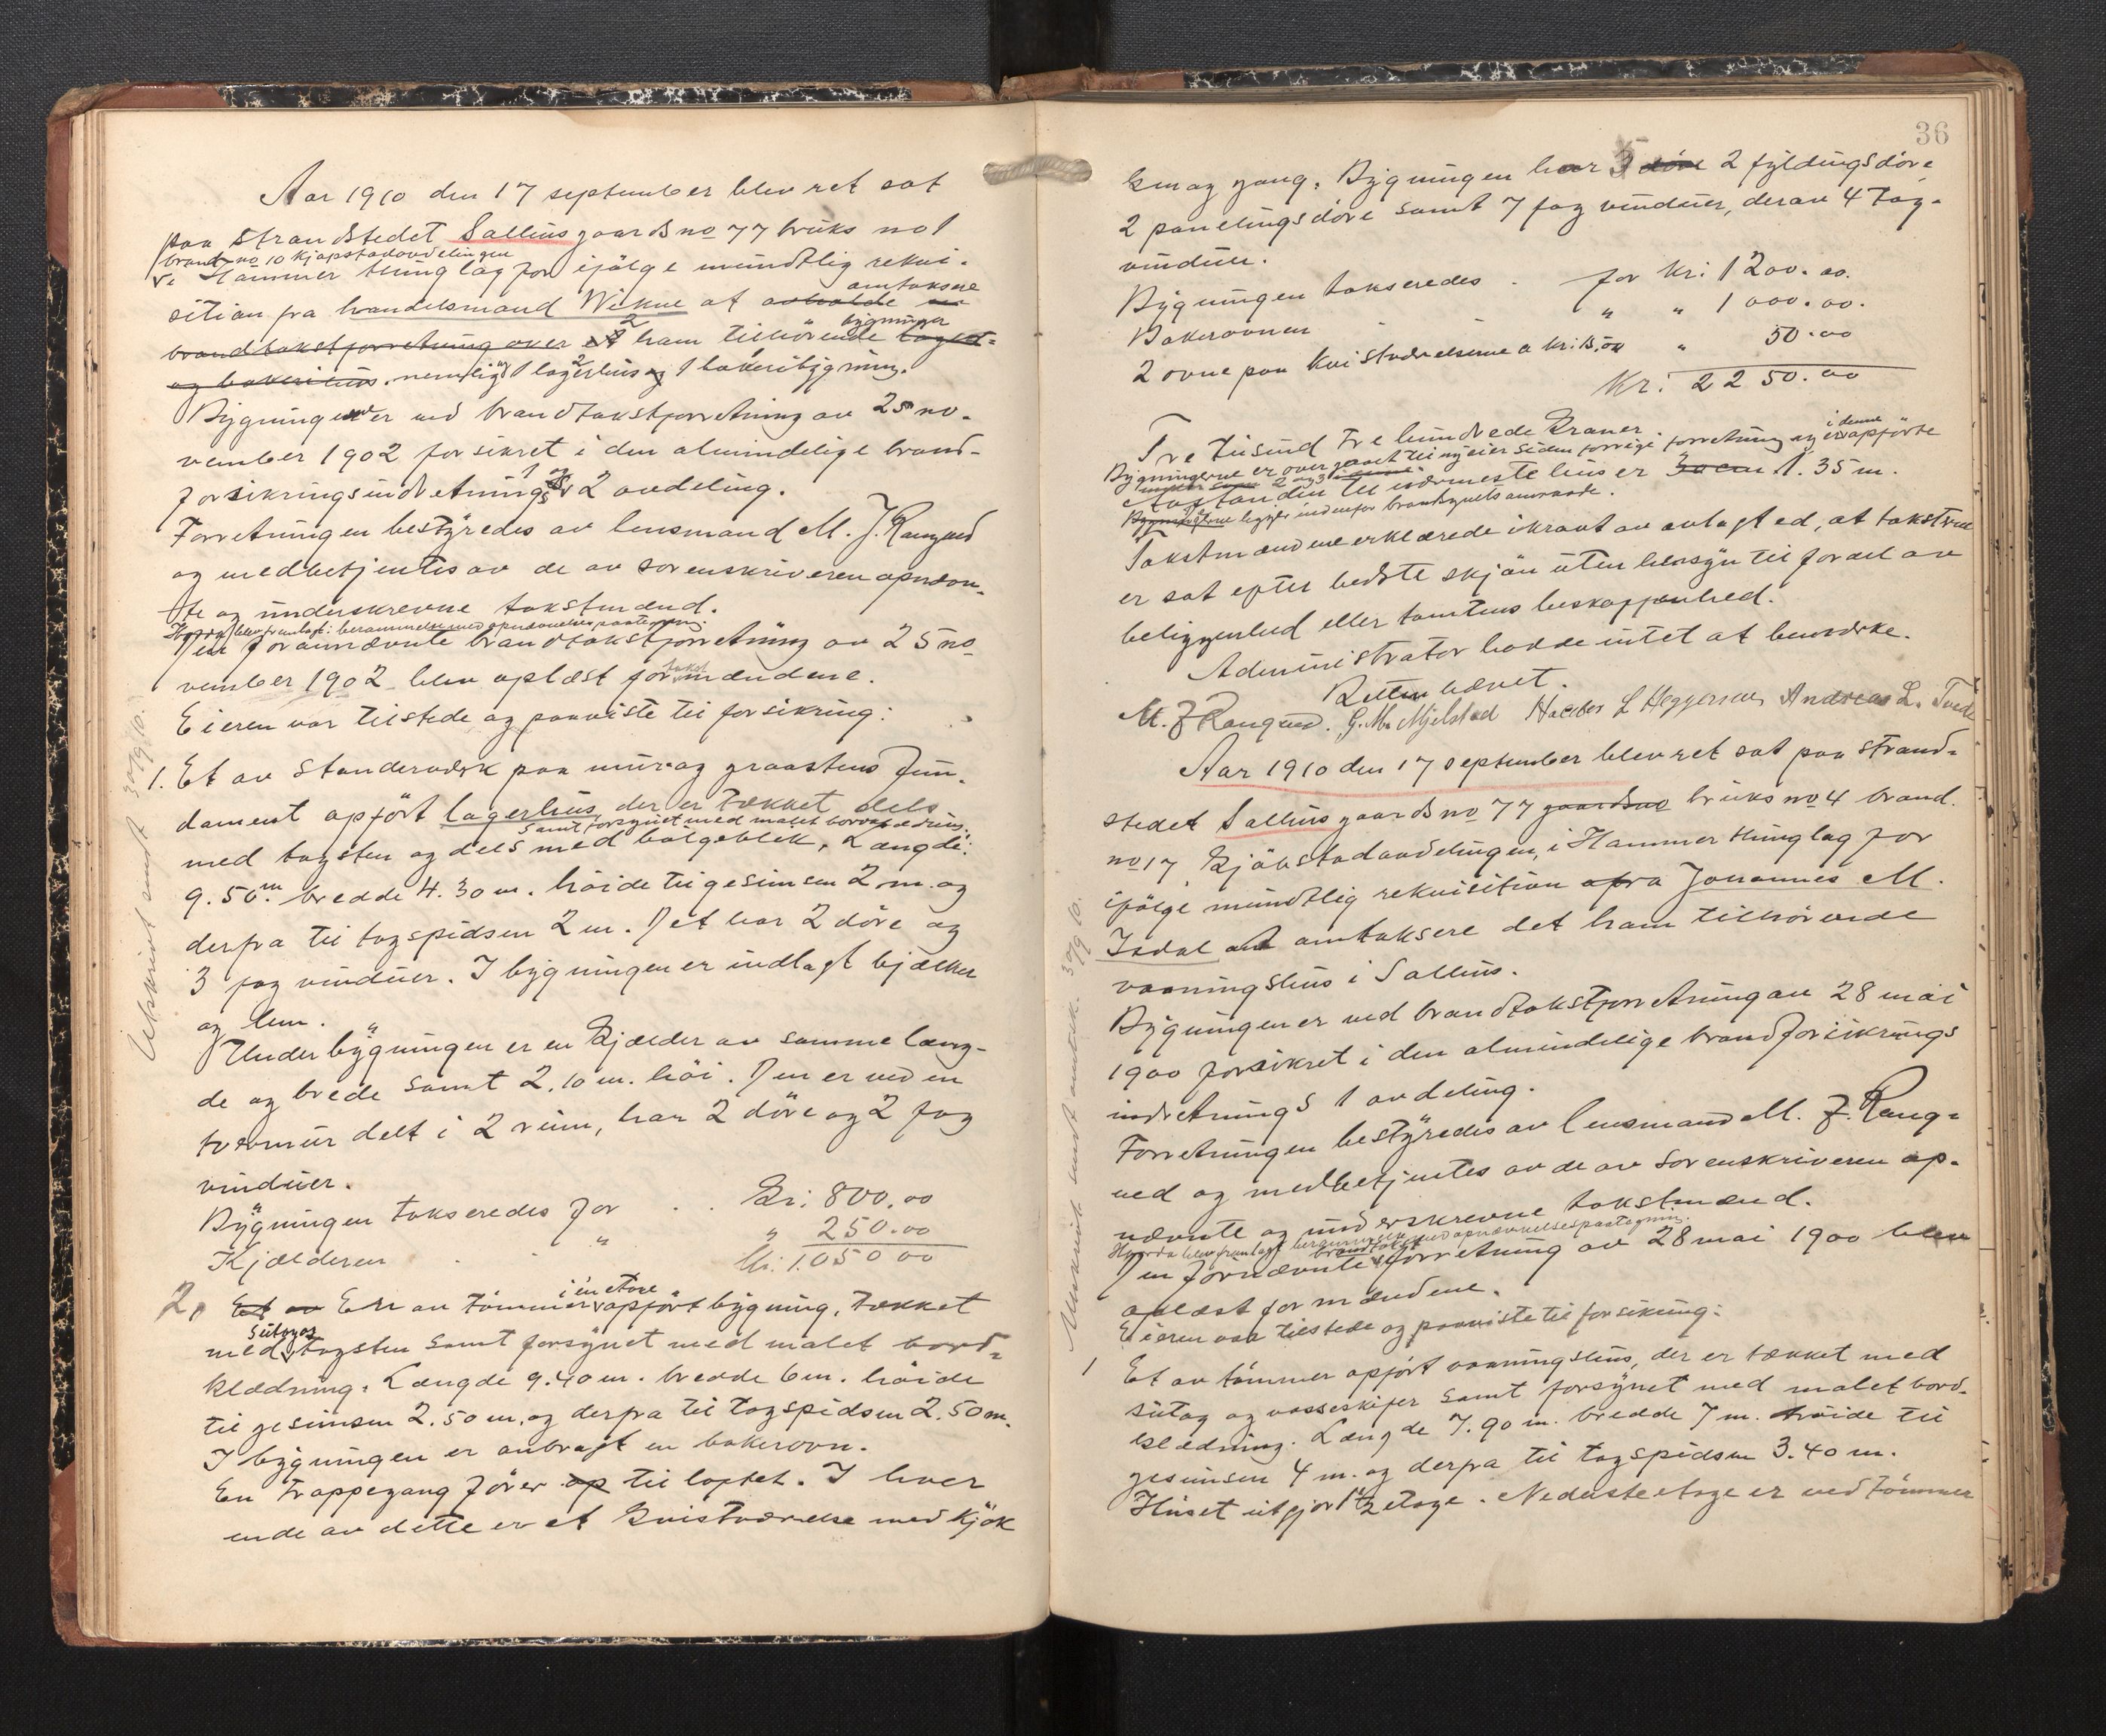 Aar 1910 den 17 september blev ret sat
paa strandstedet Salhus gaards no 77 bruks no 1
brand no 10 kjøpstadavdelingen
i Hammer thinglag for ifølge mundtlig rekvi-
omtaksere
sition fra handelsmand Wikne at avholde en
2 bygninger
brandtakstforretning over ham tilhørende
og bakerihus. nemlig 1 lagerhus og 1 bakeribygning.
Bygningerne er ved brandtakstforretning av 25 no-
vember 1902 forsikret i den almindelige brand-
1 og
forsikringsindretnings 2 avdeling.
Forretningen bestyredes av lensmand M. J. Rangnes
og medbetjentes av de av sorenskriveren opnævn-
te og underskrevne takstmænd.
Hvorda blev fremlagt: berammelse med opnævnelsespaategning.
Den forannævnte brandtakstforretning av 25 no-
takst
vember 1902 blev oplæst for mændene.
Eieren var tilstede og paaviste til forsikring:
1. Et av standerværk paa mur og graastens fun-
dament opført lagerhus, der er tækket dels
samt forsynet med malet bordklædning.
med tagsten og dels med bølgeblik. Længde:
9.50 m. bredde 4.30 m. høide til gesimsen 2 m. og
derfra til tagspidsen 2 m. Det har 2 døre og
3 fag vinduer. I bygningen er indlagt bjælker
og lem.
Under bygningen er en Kjælder av samme læng-
de og brede samt 2.10 m. høi. Den er ved en
tvermur delt i 2 rum, har 2 døre og 2 fag
vinduer.
Bygningen takseredes for . . Kr: 800.00
Kjælderen . " . " 250.00
Kr: 1.050 00
2. Et av En av tømmer i en etage opført bygning, tækket
sutag og
med tagsten samt forsynet med malet bord-
klædning. Længde 9.40 m. bredde 6 m. høide
til gesimsen 2.50 m. og derfra til tagspidsen 2.50 m.
I bygningen er anbragt en bakerovn.
En trappegang fører op til loftet. I hver
ende av dette er et Kvistværelse med kjøk
Utskrevet sendt 30/9 10.
36
ken og gang. Bygningen har 3 døre 2 fyldingsdøre
2 panelingsdøre samt 7 fag vinduer, derav 4 tag-
vinduer.
Bygningen takseredes . for kr: 1200.00.
Bakerovnen . " " 1 000.00.
2 ovne paa kvistværelserne a kr: 25,00 " 50.00
Kr: 2250.00
Tre tusind tre hundrede Kroner.
Bygningerne er overgaaet til ny eier siden forrige forretning og er i denne opførte
under som 2 og 3
Avstanden til nærmeste hus er 30 cm 1.35 m.
Bygningerne ligger indenfor brandsynets omraade.
Takstmændene erklærede i kraft av avlagt ed, at taksten
er sat efter bedste skjøn uten hensyn til fordel av
beliggenhed eller tomtens beskaffenhed.
Administrator havde intet at bemærke.
Retten hævet.
M. J. Rangnes. G. M. Mjelstad Haldor L Heggernes Andreas L. Tveit
Aar 1910 den 17 september blev ret sat paa strand-
stedet Salhus gaards no 77 gaardsno bruks no 4 brand.
no 17 Kjøbstadavdelingen, i Hammer thinglag for
ifølge mundtlig rekvisition afra Johannes M.
Isdal at omtaksere det ham tilhørende
vaaningshus i Salhus.
Bygningen er ved brandtakstforretning av 28 mai
1900 forsikret i den almindelige brandforsikrings
indretnings 1 avdeling.
Forretningen bestyredes av lensmand M. J. Rang-
nes og medbetjentes av de av sorenskriveren op-
nævnte og underskrevne takstmænd.
Hvorda blev fremlagt berammelse med opnævnelsespaategning.
brandtakst
Den førnævnte forretning av 28 mai 1900 blev
oplæst for mændene.
Eieren var tilstede og paaviste til forsikring:
1 Et av tømmer opført vaaningshus, der er tækket med
sutag og vosseskifer samt forsynet med malet bord-
klædning. Længde 7.90 m. bredde 7 m. høide til
gesimsen 4 m. og derfra til tagspidsen 3.40 m.
Huset utgjør 1 1/2 etage. Nederste etage er ved tømmer
Utskrevet sendt 30/9 10.